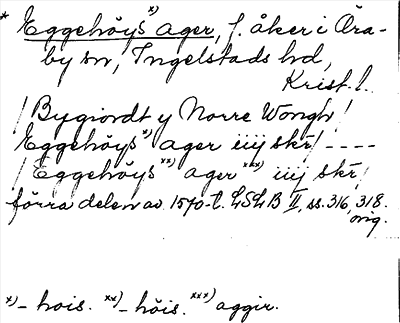 * Eggehöys x) ager, f. åker i Öra-
by sn, Ingelstads hd,
Krist. l.
/ Bygiordt y Norre Wongh /
Eggehöys x) ager iiij skr̄ / ----
/ Eggehöys xx) ager xxx) iiij skr̄ /
förra delen av 1570-t. LSLB II, ss. 316, 318.
orig.
x) - hois. xx) - höis. xxx) aggir.